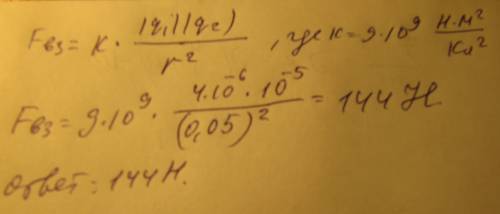 Fвз = k · |q₁||q₂| / r² , где k = 9·10⁹ Н·м² / Кл²
Fвз = 9·10⁹ · 4·10⁻⁶·10⁻⁵ / (0,05)² = 144 Н
Ответ: 144 Н.